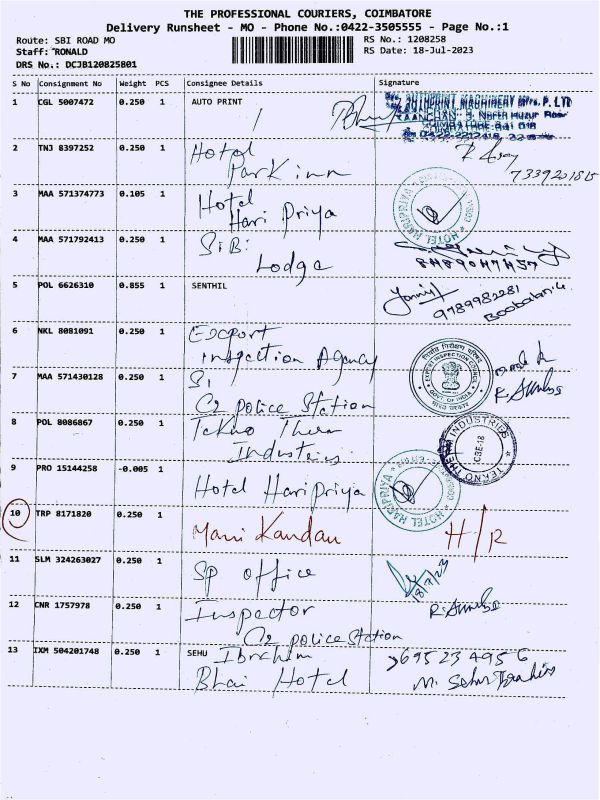 THE PROFESSIONAL COURIERS, COIMBATORE
Delivery Runsheet - MO - Phone No.:0422-3505555 - Page No.:1
Route: SBI ROAD MO RS No.: 1208258
Staff: RONALD RS Date: 18-Jul-2023
DRS No.: DCJB120825801
S No Consignment No Weight PCS Consignee Details Signature
1 CGL 5007472 0.250 1 AUTO PRINT
2 TNJ 8397252 0.250 1 Hotel
Park inn
7339201815
3 MAA 571374773 0.105 1 Hotel
Hari Priya
HOTEL HARIPRIYA
4 MAA 571792413 0.250 1 S.B.
Lodge
5 POL 6626310 0.855 1 SENTHIL
9789982281
Boobalan.G
6 NKL 8081091 0.250 1 Export
Inspection Agency
EXPORT INSPECTION COUNCIL
GOVT. OF INDIA
7 MAA 571430128 0.250 1 S.I
C2 police Station
8 POL 8086867 0.250 1 Tekno Therm
Industries
TEKNO THERM INDUSTRIES
CBE-18
9 PRO 15144258 -0.005 1
Hotel HariPriya
HOTEL HARIPRIYA
10 TRP 8171820 0.250 1
Mani Kandan H/R
11 SLM 324263027 0.250 1
Sp office
18/7/23
12 CNR 1757978 0.250 1 Inspector
C2 police Station
13 IXM 504201748 0.250 1 SEHU Ibrahim
Bhai Hotel
7695234956